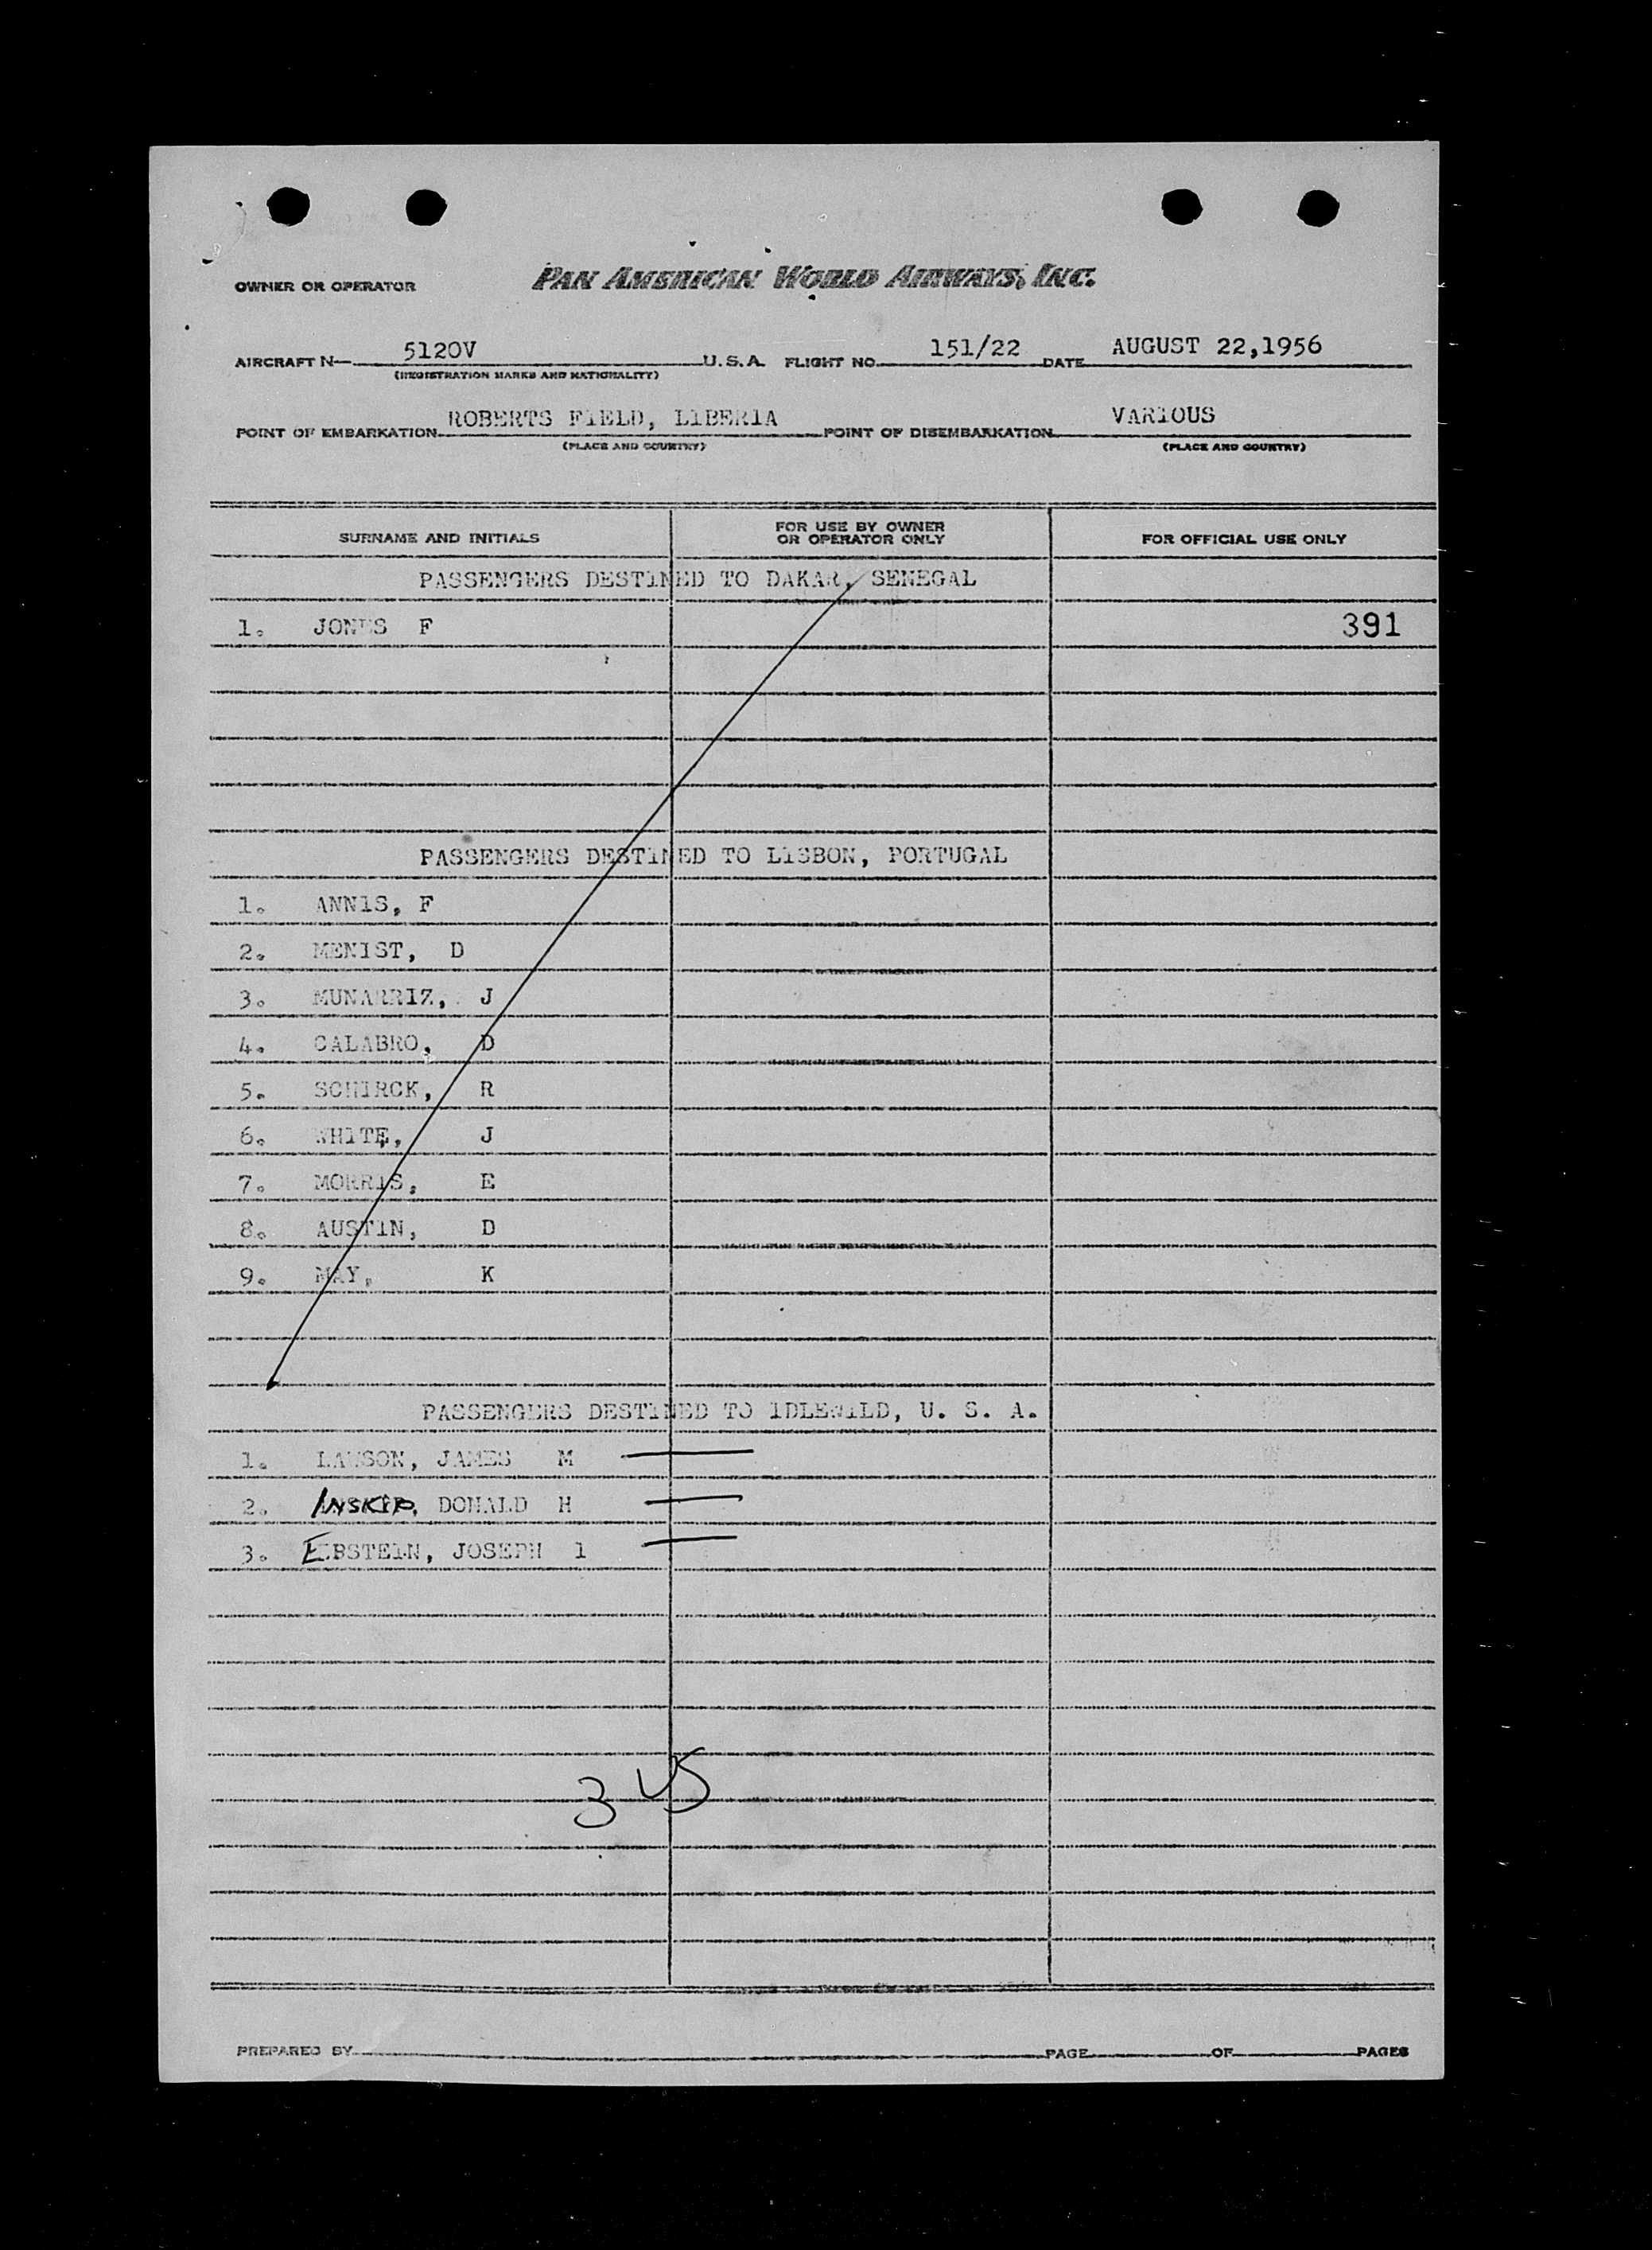 OWNER OR OPERATOR PAN AMERICAN WORLD AIRWAYS, INC.
AIRCRAFT N— 5120V U.S.A. FLIGHT NO. 151/22 DATE AUGUST 22,1956
(REGISTRATION MARKS AND NATIONALITY)
POINT OF EMBARKATION ROBERTS FIELD, LIBERIA POINT OF DISEMBARKATION VARIOUS
(PLACE AND COUNTRY) (PLACE AND COUNTRY)
SURNAME AND INITIALS FOR USE BY OWNER OR OPERATOR ONLY FOR OFFICIAL USE ONLY
PASSENGERS DESTINED TO DAKAR, SENEGAL
1. JONES F 391
PASSENGERS DESTINED TO LISBON, PORTUGAL
1. ANNIS, F
2. MENIST, D
3. MUNARRIZ, J
4. CALABRO, D
5. SCHIRCK, R
6. WHITE, J
7. MORRIS, E
8. AUSTIN, D
9. MAY, K
PASSENGERS DESTINED TO IDLEWILD, U. S. A.
1. LAWSON, JAMES M
2. INSKIP, DONALD H
3. EBSTEIN, JOSEPH 1
3 US
PREPARED BY PAGE OF PAGES